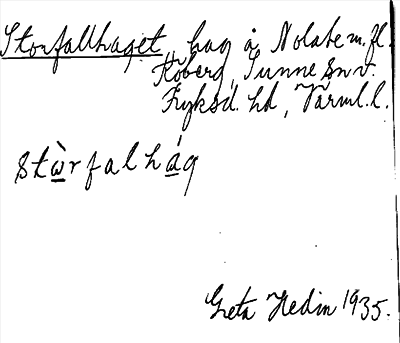 Storfallhaget, hag å Nolabe m.fl.
Roberg, Sunne sn v.
Fryksd. hd, Värml. l.
stẁ̲rfalhá̲g
Greta Hedin 1935.